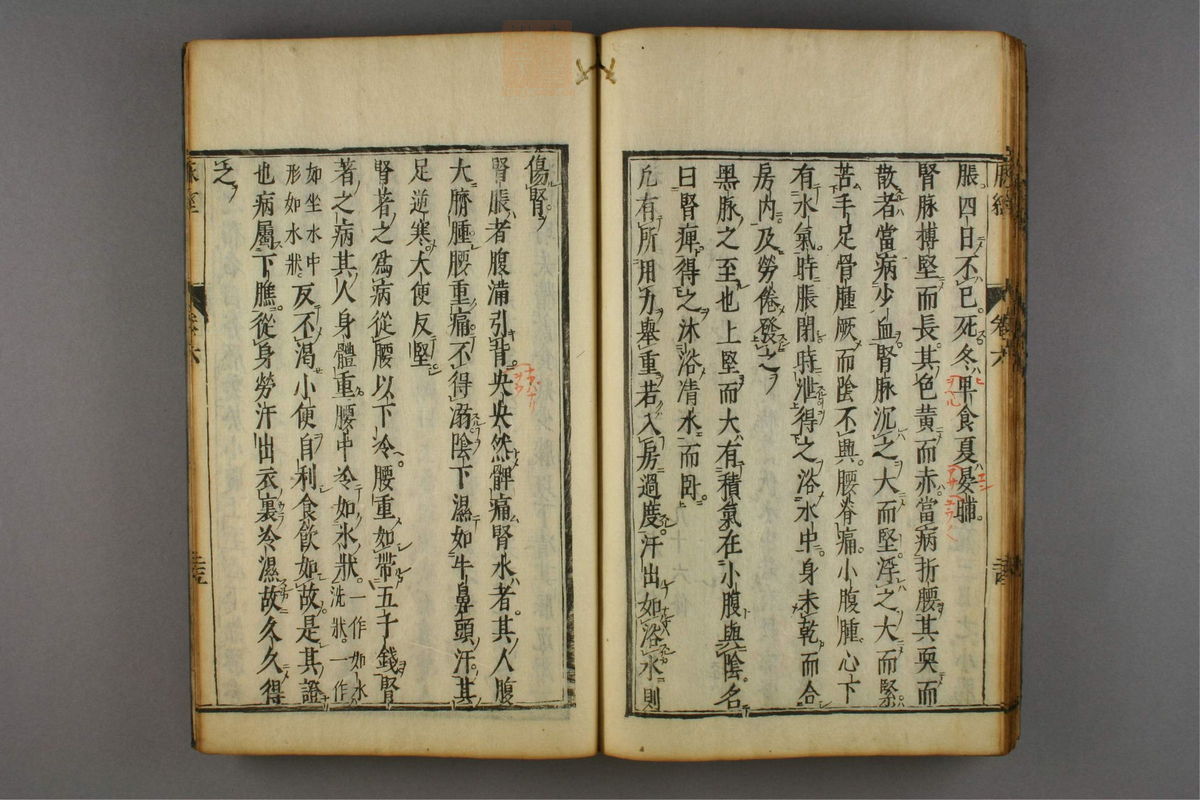 脹四日不已死冬食夏晏晡
腎脉搏堅而長其色黄而赤當病折腰其耎而
散者當病少血腎脉沉之大而堅浮之大而緊
苦手足骨腫厥而陰不興腰脊痛小腹腫心下
有水氣時脹閉時泄得之浴水中身未乾而合
房内及勞倦發之
黑脉之至也上堅而大有積氣在小腹與陰名
曰腎痺得之沐浴清水而卧
凡有所用力舉重若入房過度汗出如浴水則
傷腎
腎脹者腹滿引背央央然髀痛腎水者其人腹
大臍腫腰重痛不得溺陰下濕如牛鼻頭汗其
足逆寒大便反堅
腎著之爲病從腰以下冷腰重如帶五千錢腎
著之病其人身體重腰中冷如氷狀一作如水洗狀一作
如坐水中形如水狀反不渴小便自利食飲如故是其證
也病屬下膲從身勞汗出衣裏冷濕故久久得
之
卷六